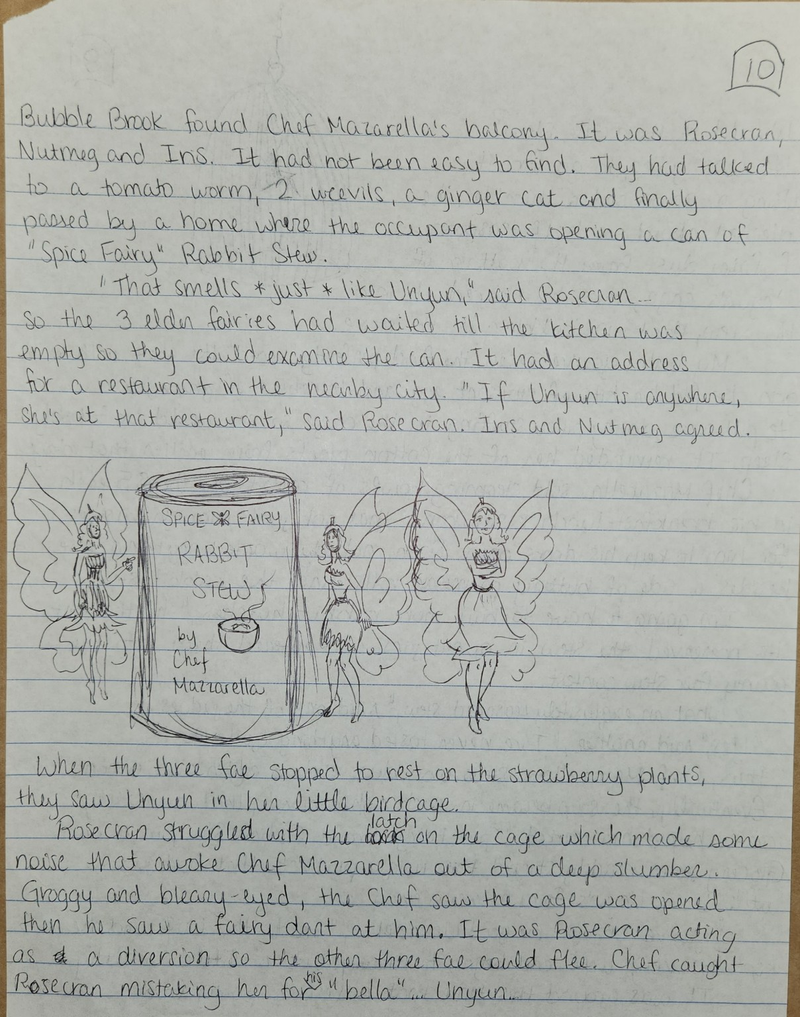 10
Bubble Brook found Chef Mazarella's balcony. It was Rosecran,
Nutmeg and Iris. It had not been easy to find. They had talked
to a tomato worm, 2 weevils, a ginger cat and finally
passed by a home where the occupant was opening a can of
"Spice Fairy" Rabbit Stew.
"That smells *just* like Unyun," said Rosecran...
so the 3 elder fairies had waited till the kitchen was
empty so they could examine the can. It had an address
for a restaurant in the nearby city. "If Unyun is anywhere,
she's at that restaurant," said Rosecran. Iris and Nutmeg agreed.
SPICE FAIRY
RABBIT
STEW
by
Chef
Mazzarella
When the three fae stopped to rest on the strawberry plants,
they saw Unyun in her little birdcage.
Rosecran struggled with the latch on the cage which made some
noise that awoke Chef Mazzarella out of a deep slumber.
Groggy and bleary-eyed, the Chef saw the cage was opened
then he saw a fairy dart at him. It was Rosecran acting
as a diversion so the other three fae could flee. Chef caught
Rosecran mistaking her for his "bella"... Unyun...